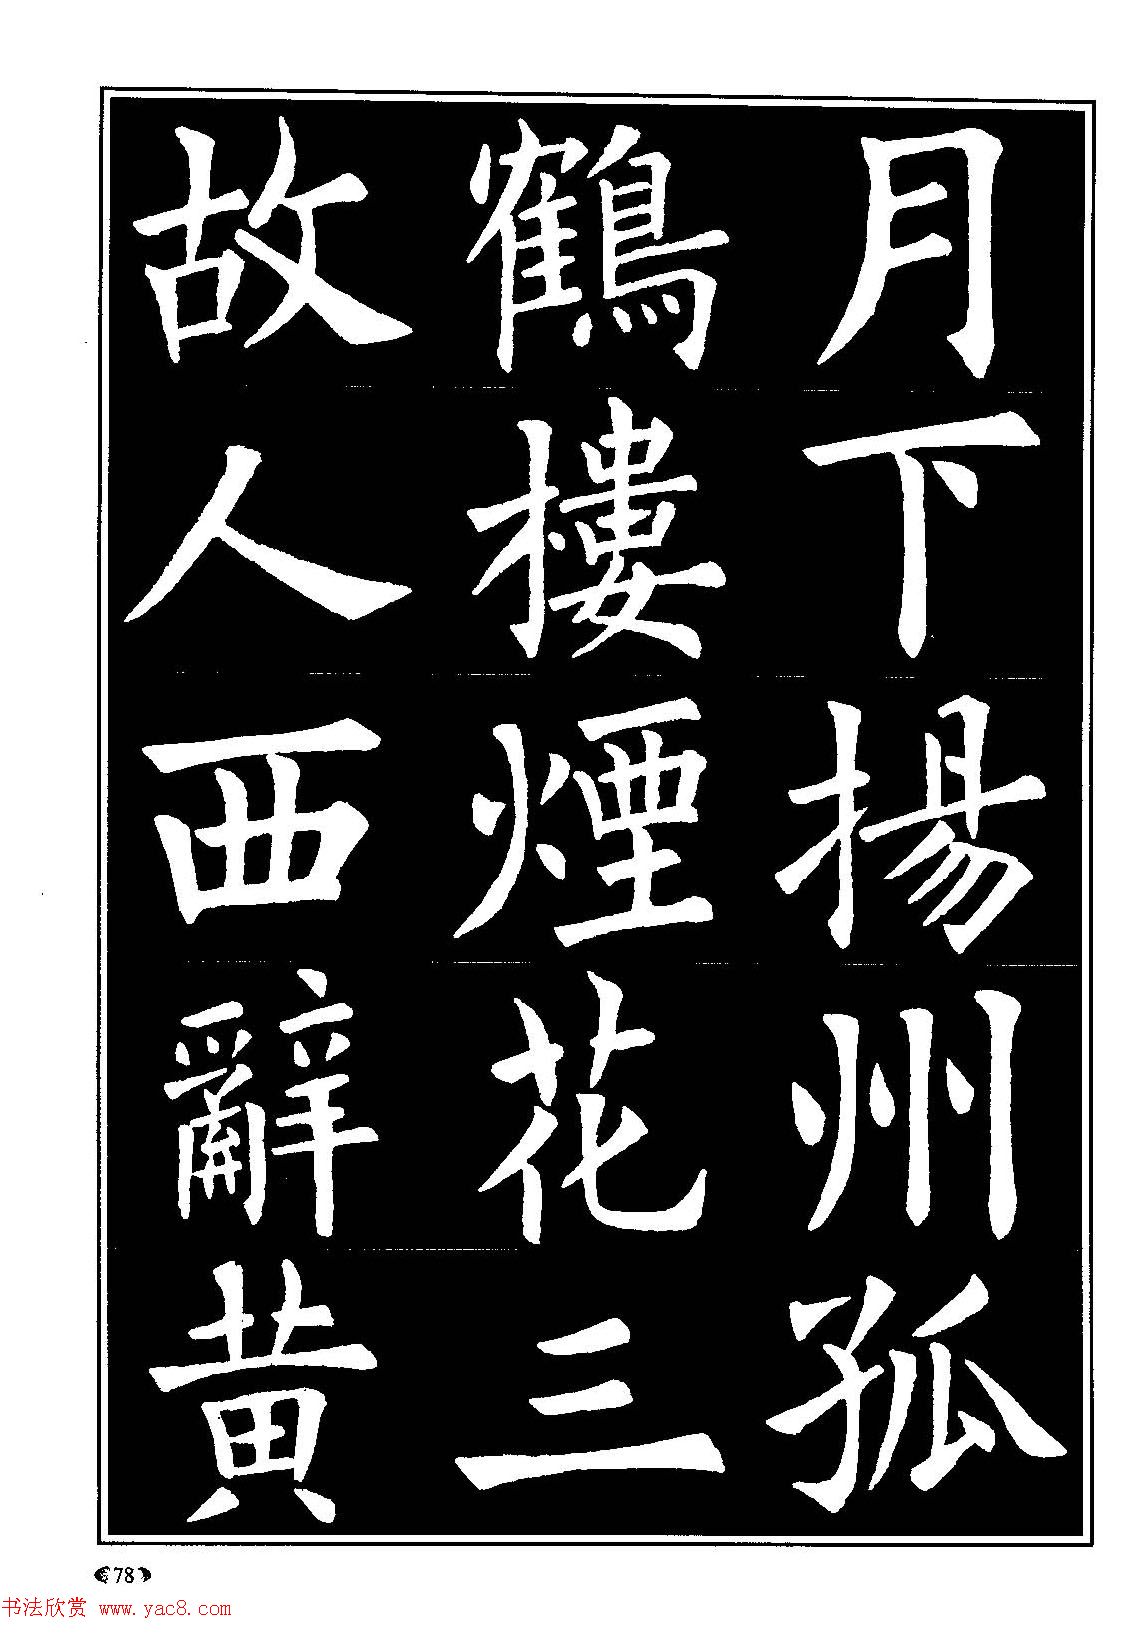 故人西辭黄
鶴樓煙花三
月下揚州孤
78
书法欣赏 www.yac8.com